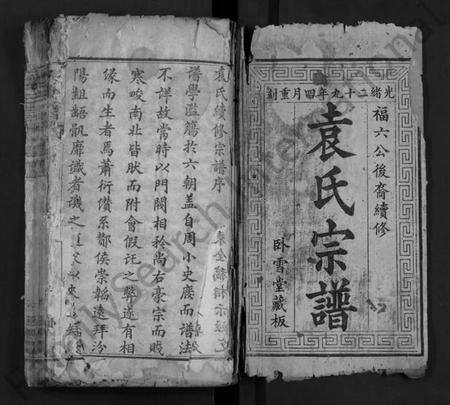 光緒二十九年四月重刻
福六公後裔續修
袁氏宗譜
臥雪堂藏板
袁氏續修宗譜序
譜學濫觴於六朝蓋自周小史廢而譜法
不詳故當時以門閥相矜尚右豪宗而賤
寒畯南北皆然而附會假託之弊遂有相
緣而生者焉蕭衍儧系酇侯崇韜遠拜汾
陽粗語飢靡識者譏之